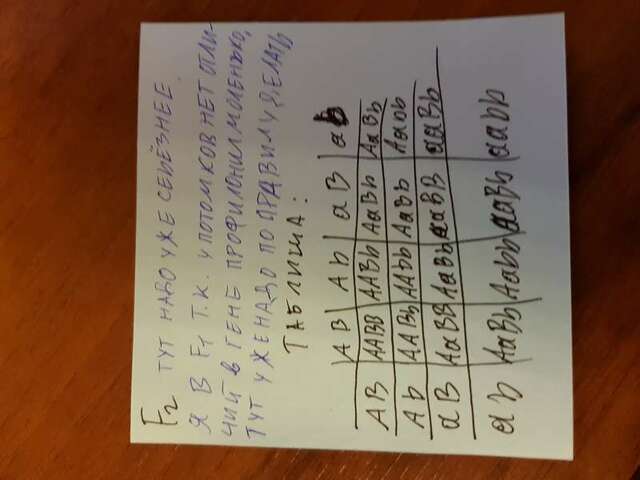 F₂ ТУТ НАДО УЖЕ СЕРЬЁЗНЕЕ.
Я В F₁ Т.К. У ПОТОМКОВ НЕТ ОТЛИ-
ЧИЙ В ГЕНЕ ПРОФИЛОНИЛ МАЛЕНЬКО,
ТУТ УЖЕ НАДО ПО ПРАВИЛУ ДЕЛАТЬ
ТАБЛИЦА:
AB Ab aB ab
AB AABB AABb AaBb AaBb
Ab AABb AAbb AaBb Aabb
aB AaBB AaBb aaBB aaBb
ab AaBb Aabb aaBb aabb